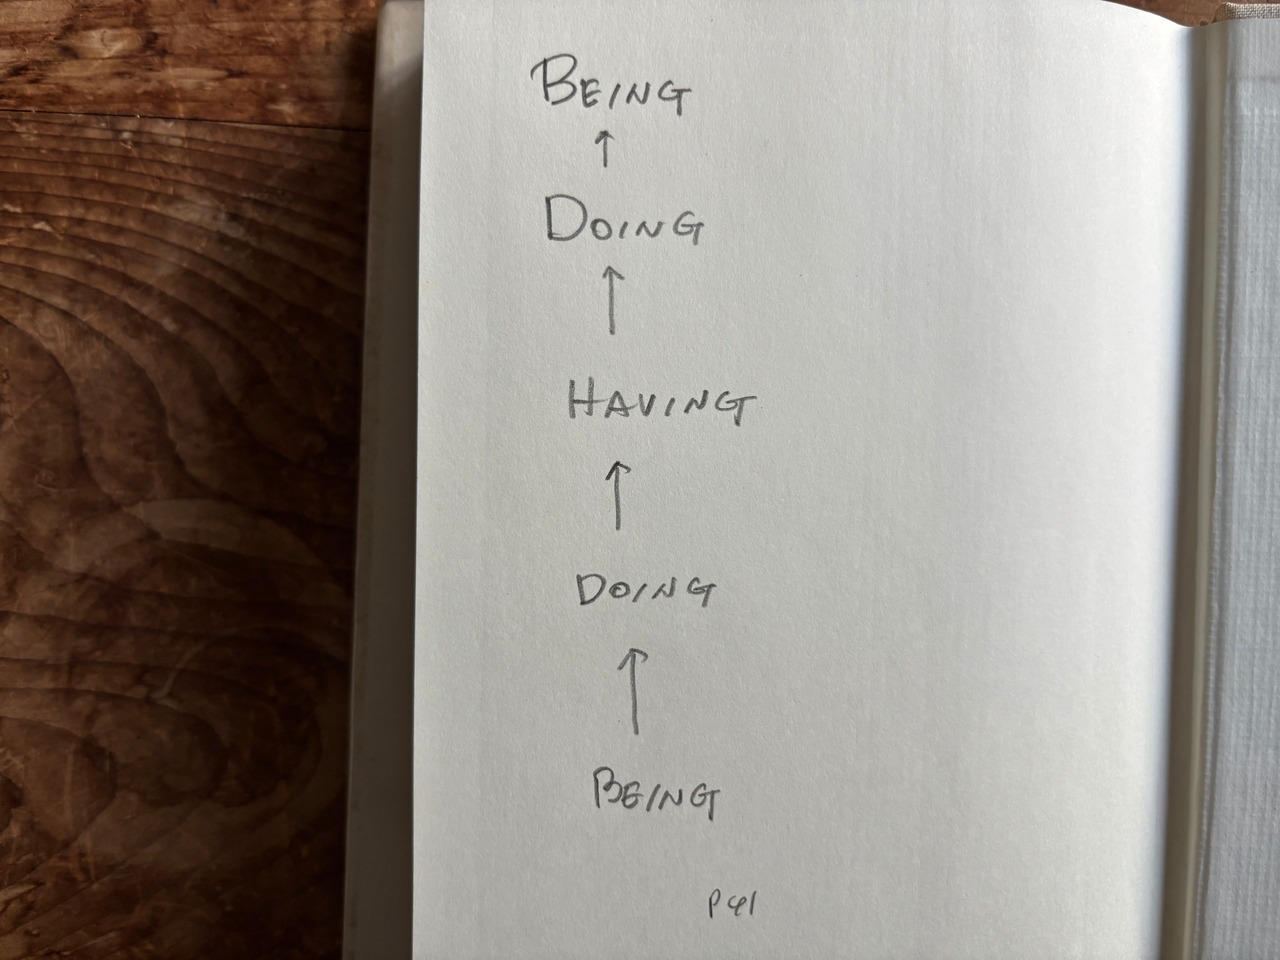 BEING
↑
DOING
↑
HAVING
↑
DOING
↑
BEING
p 41